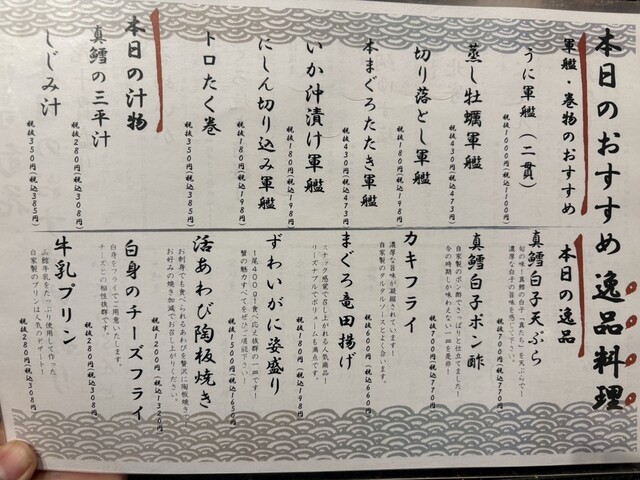 本日のおすすめ逸品料理
軍艦・巻物のおすすめ
うに軍艦（二貫）
税抜1000円(税込1100円)
蒸し牡蠣軍艦
税抜430円(税込473円)
切り落とし軍艦
税抜180円(税込198円)
本まぐろたたき軍艦
税抜430円(税込473円)
いか沖漬け軍艦
税抜180円(税込198円)
にしん切り込み軍艦
税抜180円(税込198円)
トロたく巻
税抜350円(税込385円)
本日の汁物
真鱈の三平汁
税抜280円(税込308円)
しじみ汁
税抜350円(税込385円)
本日の逸品
真鱈白子天ぷら
旬の味！真鱈の白子「真たち」を天ぷらで！
濃厚な白子の旨味を感じて下さい。
税抜700円(税込770円)
真鱈白子ポン酢
自家製のポン酢でさっぱりと仕立てました！
今の時期しか味わえない一皿を是非！
税抜700円(税込770円)
カキフライ
濃厚な旨味が凝縮されています！
自家製のタルタルソースとよく合います。
税抜600円(税込660円)
まぐろ竜田揚げ
スナック感覚で召し上がれる人気商品！
リーズナブルでボリュームも満点です。
税抜180円(税込198円)
ずわいがに姿盛り
1尾400g！食べ応え抜群の一皿です！
蟹の魅力すべてをぜひご堪能下さい！
税抜1500円(税込1650円)
活あわび陶板焼き
お刺身でも食べられるあわびを贅沢に陶板焼き
お好みの焼き加減でお召し上がりください。
税抜1200円(税込1320円)
白身のチーズフライ
白身をフライでご用意いたします。
チーズとの相性抜群です。
税抜280円(税込308円)
牛乳プリン
函館牛乳をたっぷり使用して作った
自家製のプリンは人気のデザート！
税抜280円(税込308円)